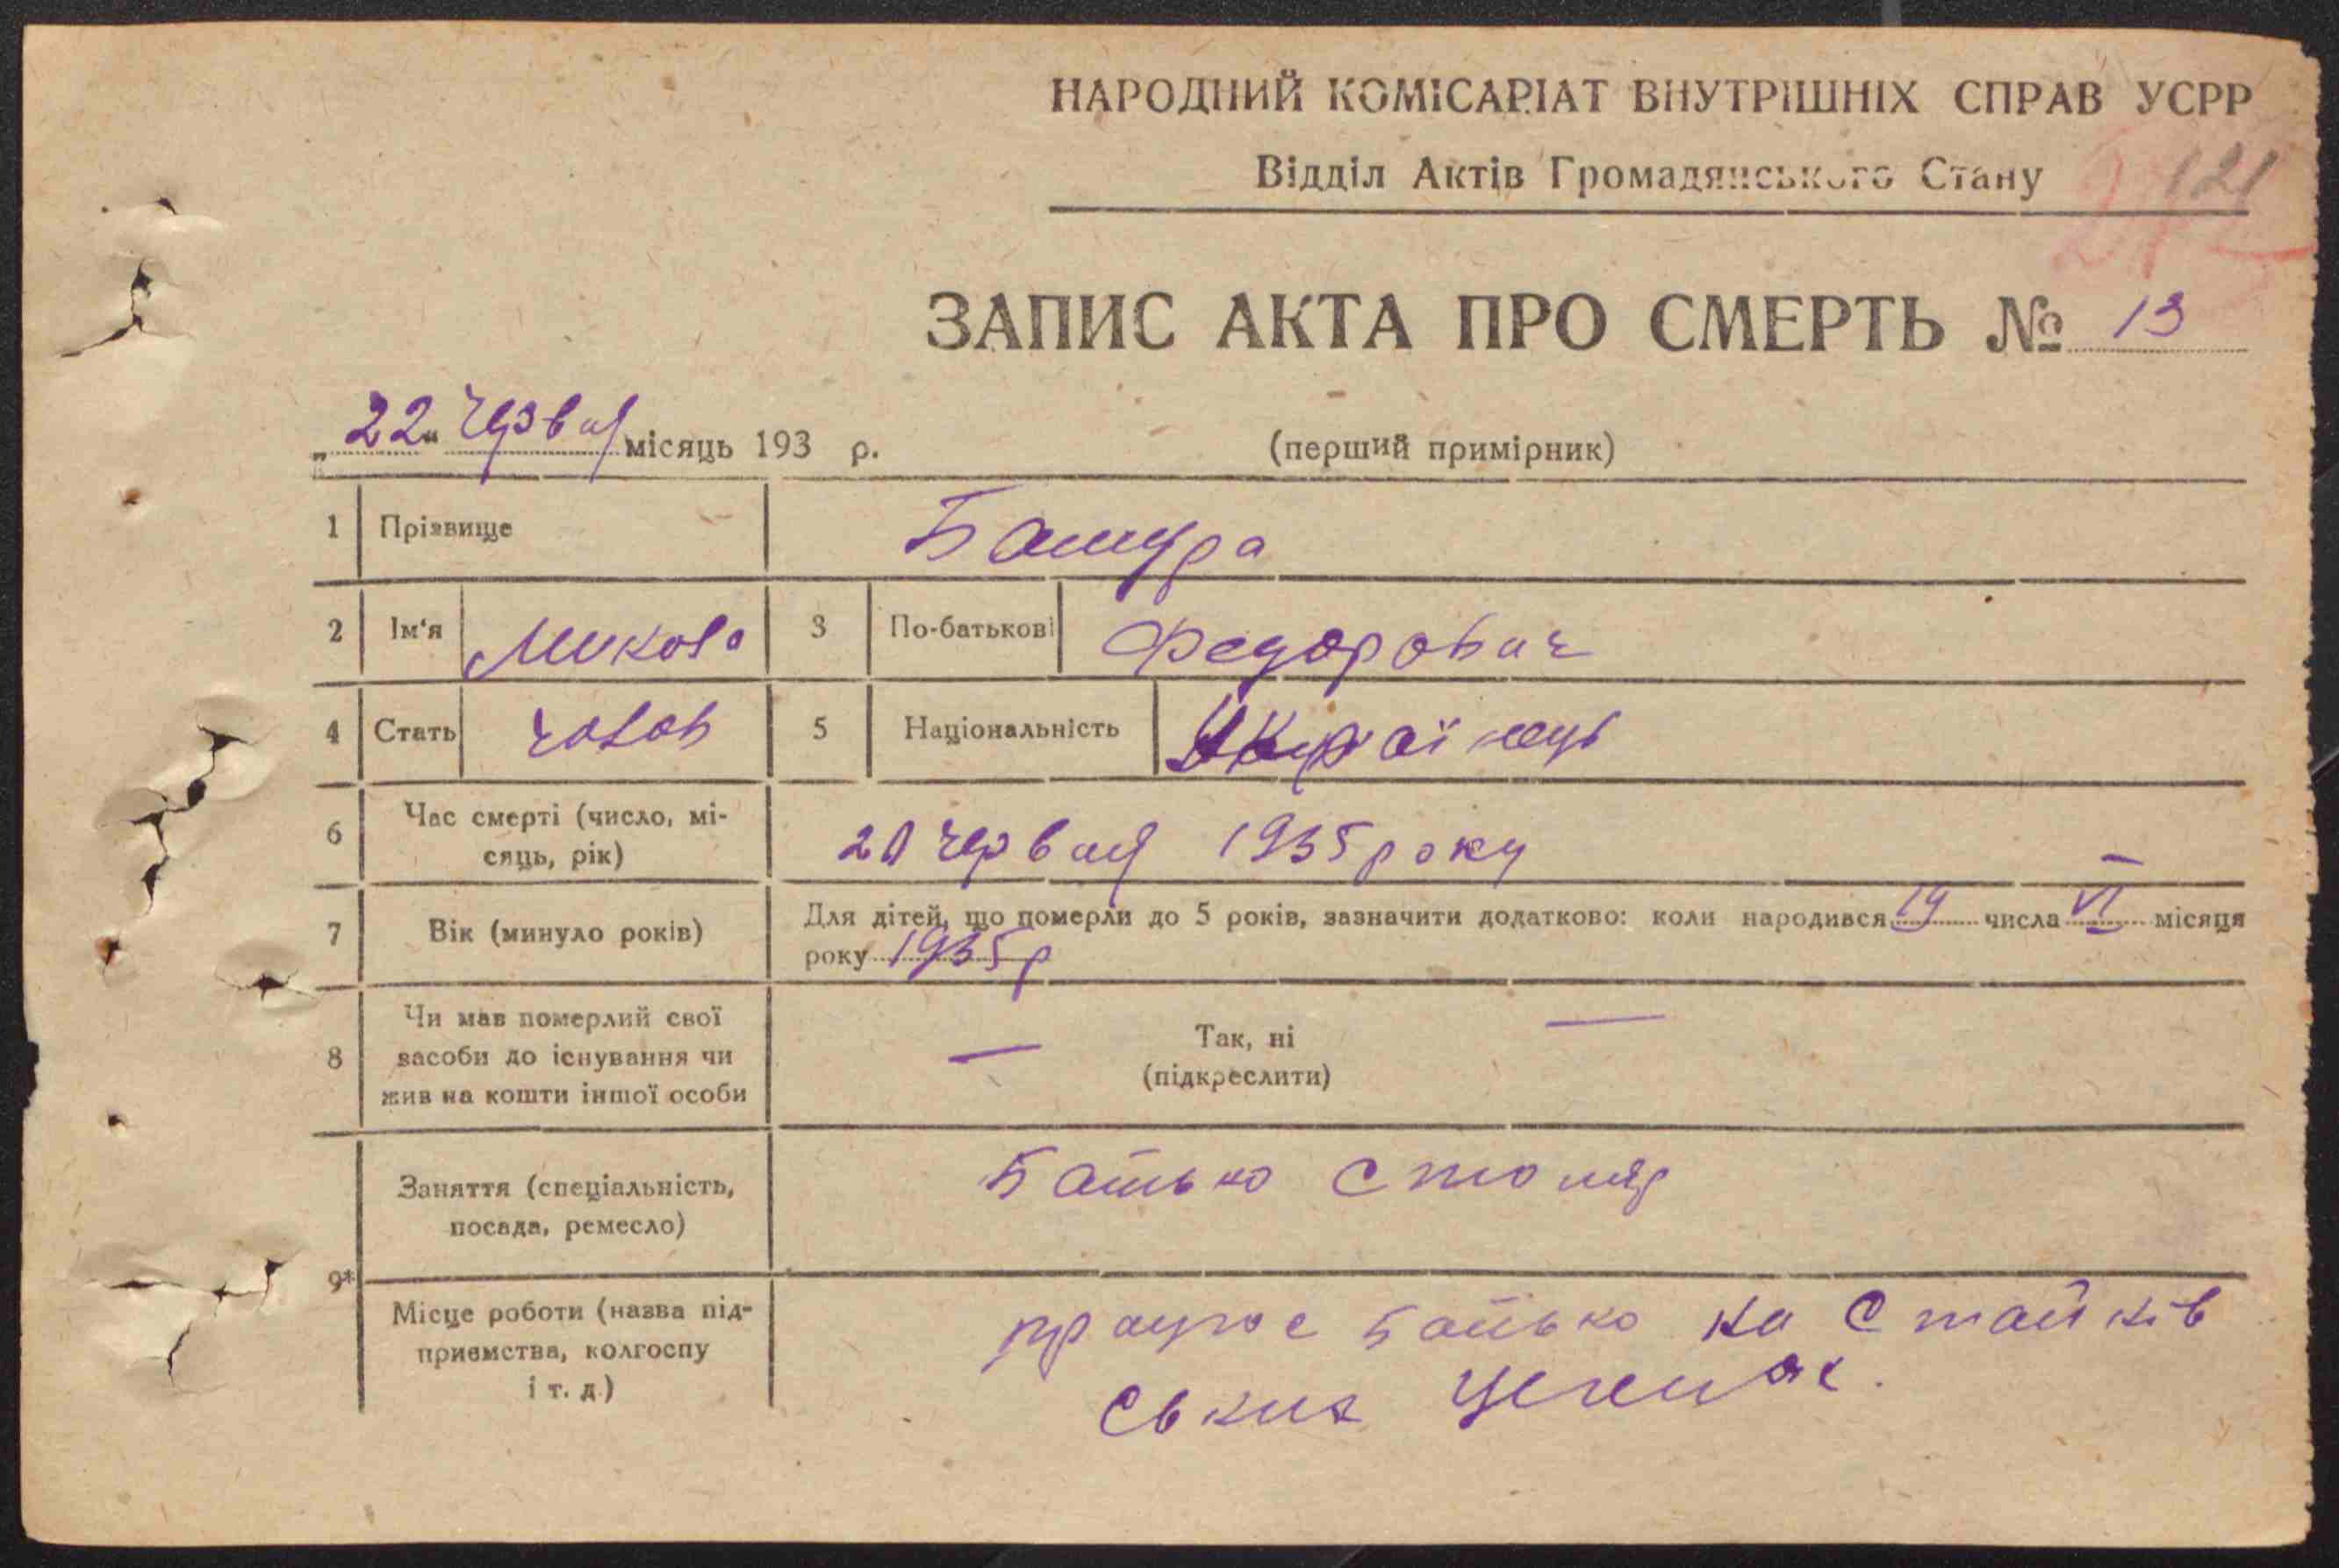 НАРОДНИЙ КОМІСАРІАТ ВНУТРІШНІХ СПРАВ УСРР
Відділ Актів Громадянського Стану
121
ЗАПИС АКТА ПРО СМЕРТЬ № 13
„22“ червня місяць 193 р.
(перший примірник)
1 Прізвище Башура
2 Ім'я Микола 3 По-батькові Федорович
4 Стать чолов 5 Національність Українець
6 Час смерті (число, мі-
сяць, рік) 20 червня 1935 року
7 Вік (минуло років) Для дітей, що померли до 5 років, зазначити додатково: коли народився 19 числа VI місяця
року 1935 р
8 Чи мав померлий свої
засоби до існування чи
жив на кошти іншої особи
— Так, ні —
(підкреслити)
9*
Заняття (спеціальність,
посада, ремесло) Батько столяр
Місце роботи (назва під-
приємства, колгоспу
і т. д.)
працює батько на Стайків
ських